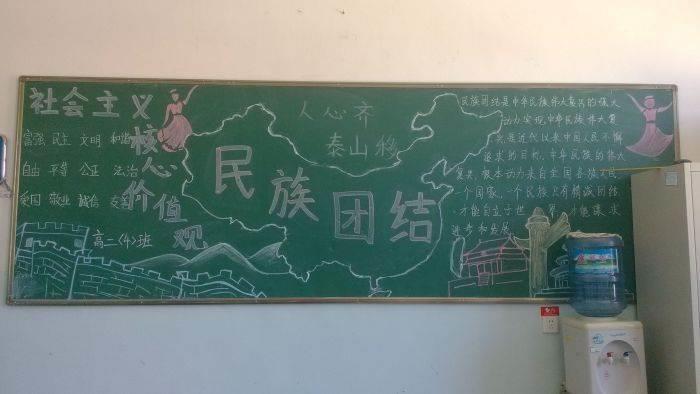 社会主义核心价值观
富强 民主 文明 和谐
自由 平等 公正 法治
爱国 敬业 诚信 友善
高二(4)班
人心齐
泰山移
民族团结
民族团结是中华民族伟大复兴的强大
动力实现中华民族伟大复
兴是近代以来中国人民不懈
追求的目标,中华民族的伟大
复兴,根本动力来自全国各族人民
一个国家,一个民族只有横流团结
才能自立于世界才能谋求
进步和发展